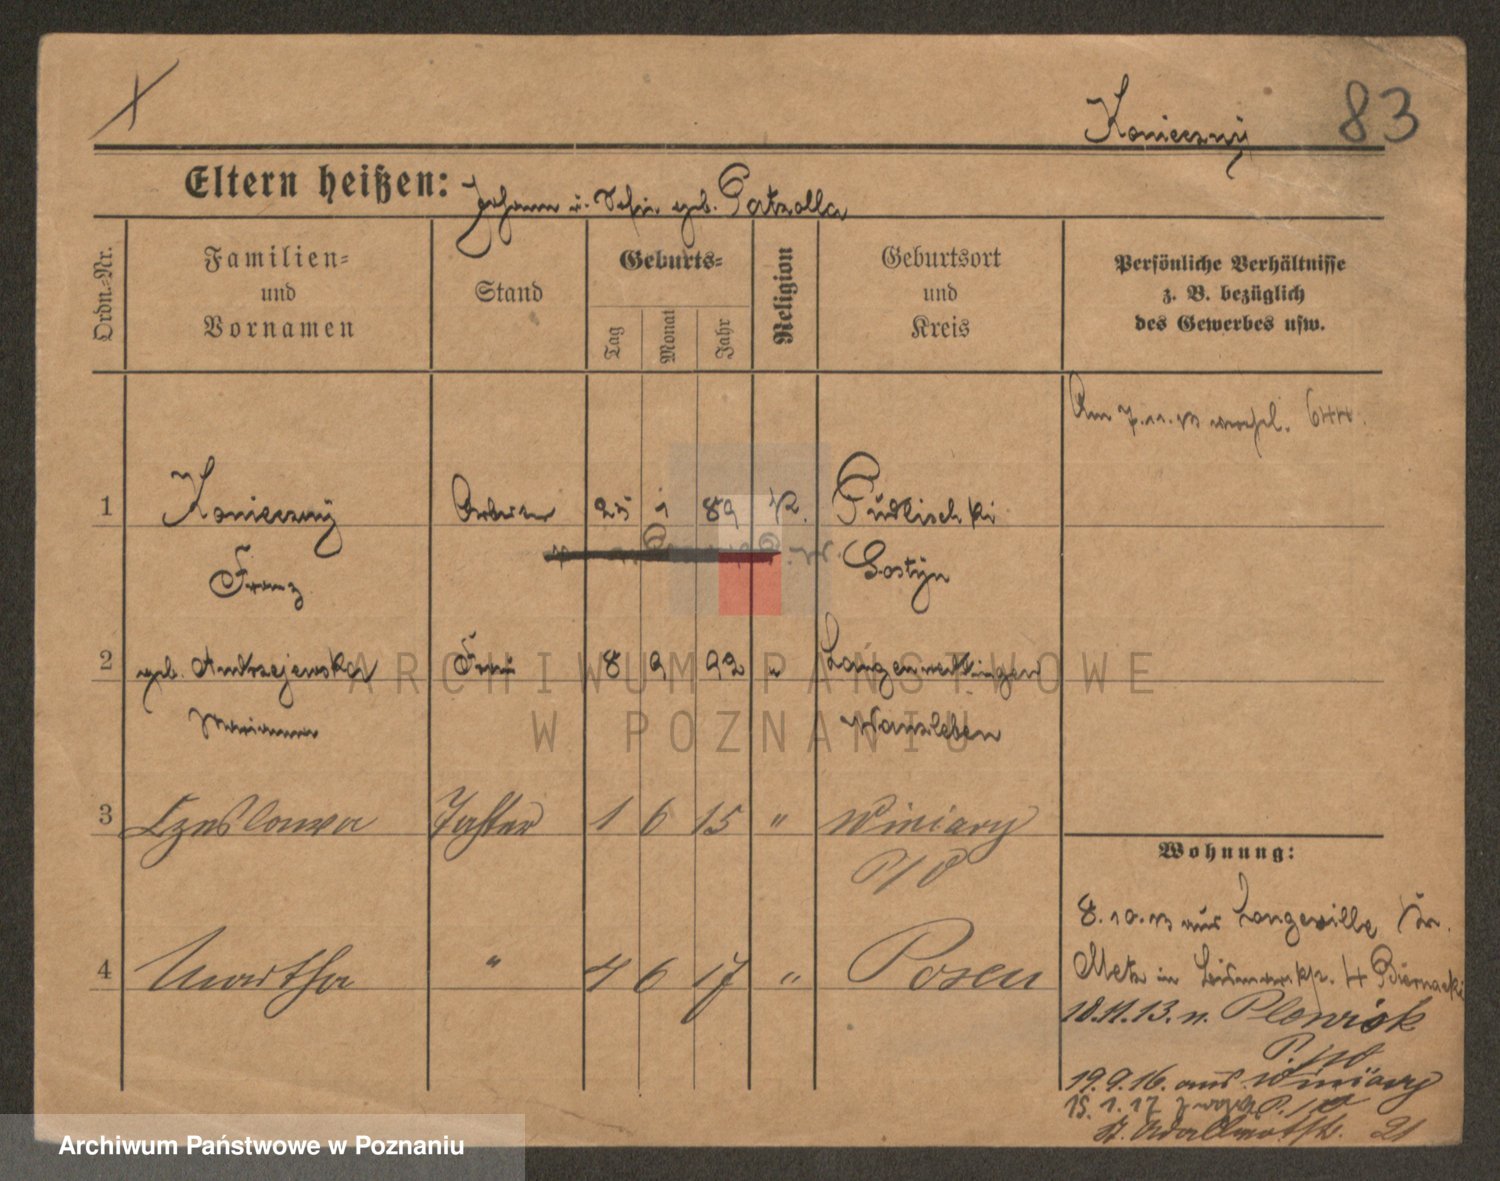 Konieczny 83
Eltern heißen: Johann u. gb. Patzolla
Ordn.-Nr.
Familien-
und
Vornamen
Stand
Geburts-
Tag
Monat
Jahr
Religion
Geburtsort
und
Kreis
Persönliche Verhältnisse
z. B. bezüglich
des Gewerbes usw.
Am 7.11.13 644.
1 Konieczny Arbeiter 25 1 89 k. Pudlischki
Franz Gostyn
2 gb. Andrzejewska Frau 8 9 92 "
Marianna Wanzleben
3 Czeslawa Tochter 1 6 15 " Winiary
P/O
4 Martha " 4 6 17 " Posen
Wohnung:
8.10.13 aus Longeville Kr.
Metz in 4 Biernacki
18.11.13. n.
P.
19.9.16. aus Winiary
15.1.17 P.
St. Adalbertstr. 21
ARCHIWUM PAŃSTWOWE
W POZNANIU
Archiwum Państwowe w Poznaniu